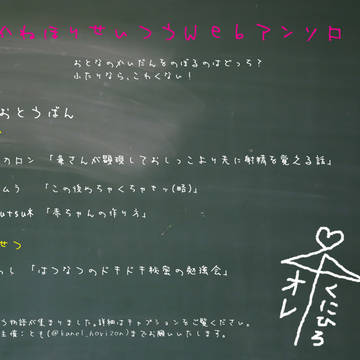 かねほりせいつうWebアンソロ
おとなのかいだんをのぼるのはどっち?
ふたりなら、こわくない!
おとうばん
ロン 「兼さんが顕現しておしっこより先に射精を覚える話」
ムう 「この後めちゃくちゃセッ(略)」
utsu木 「赤ちゃんの作り方」
せつ
し 「はつなつのドキドキ秘密の勉強会」
物語が集まりました。詳細はキャプションをご覧ください。
主催:とも(@kanel_horizon)までお願いいたします。
オレ
くにひろ